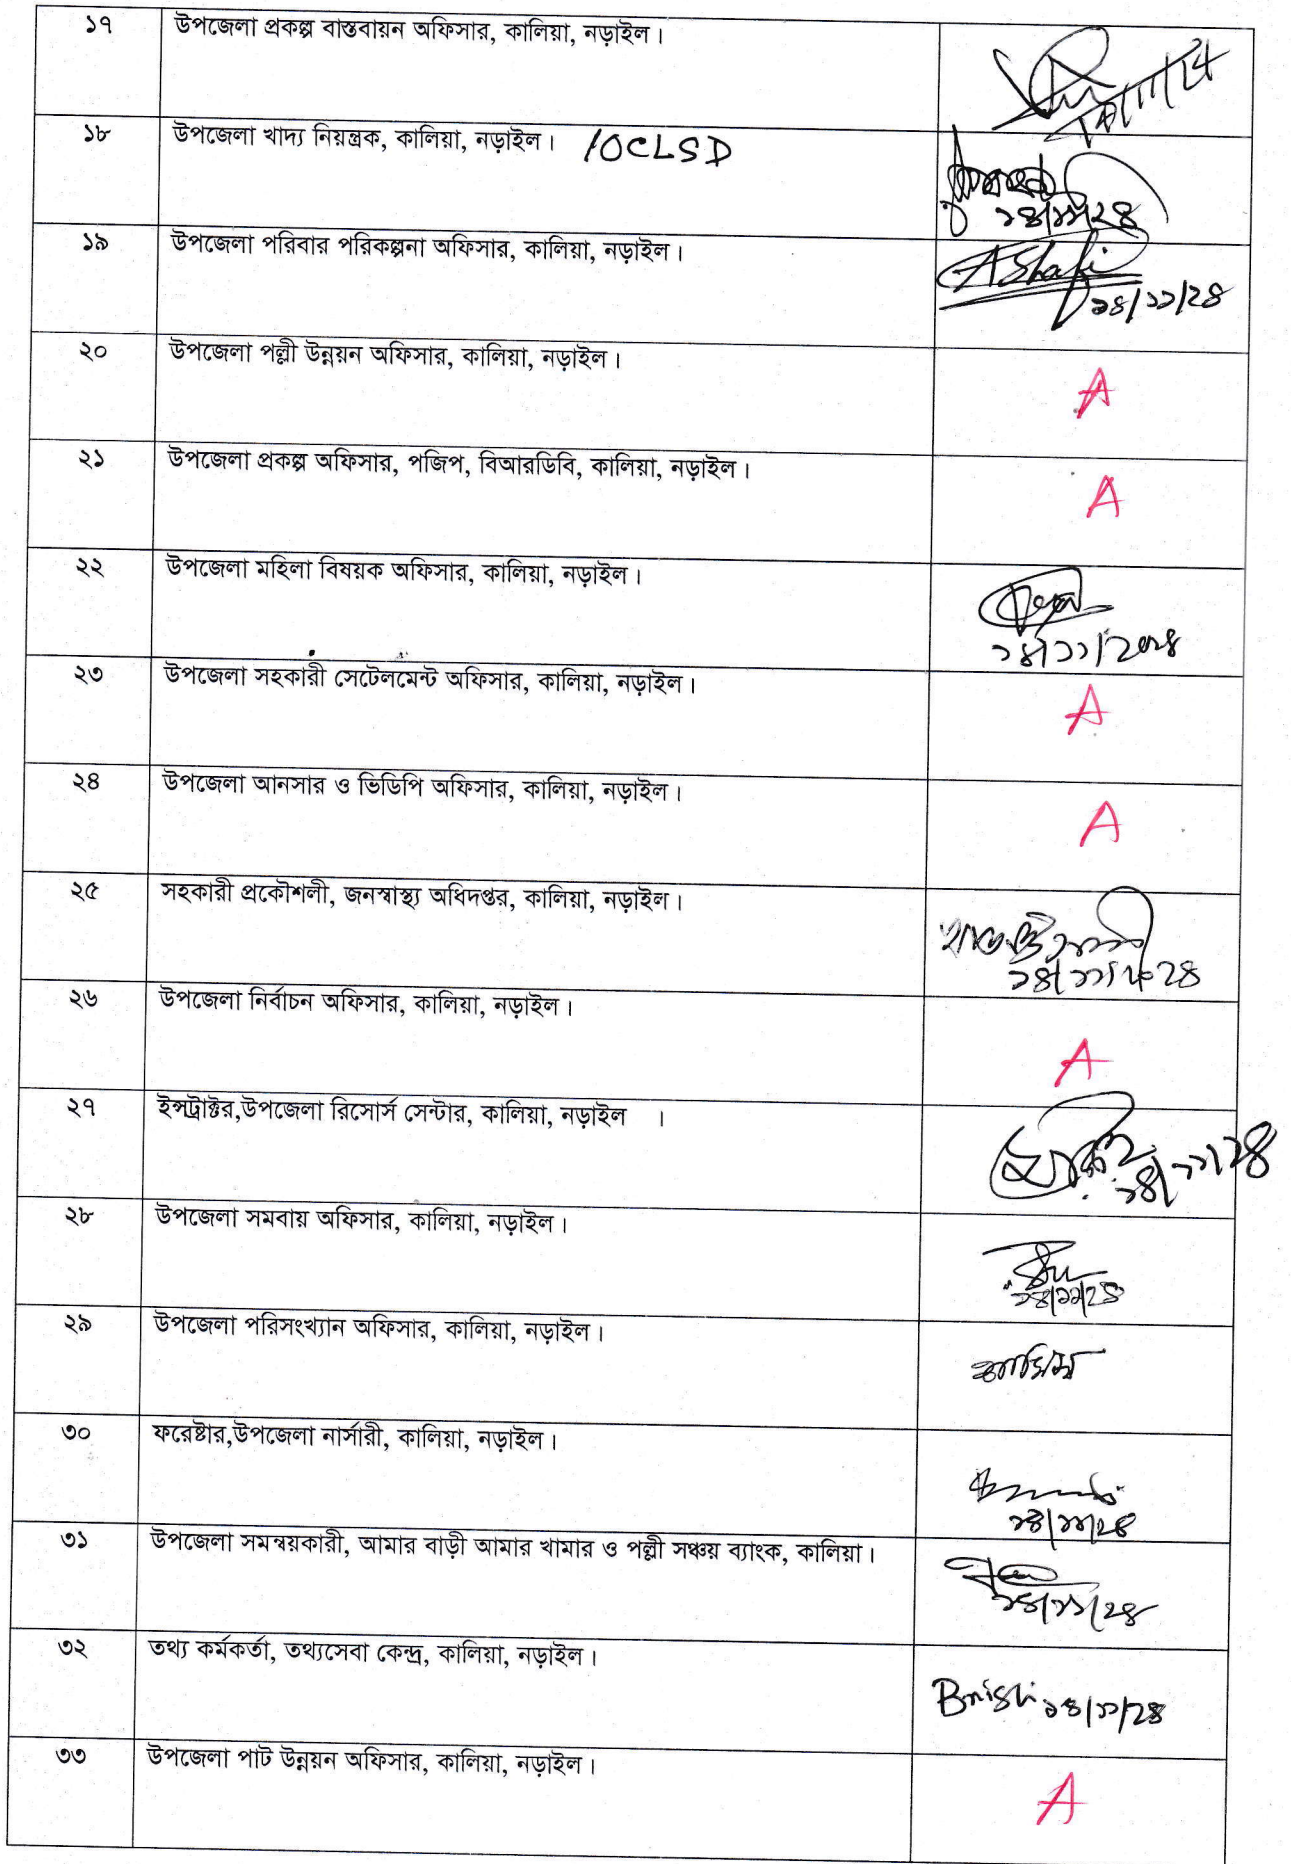 ১৭ উপজেলা প্রকল্প বাস্তবায়ন অফিসার, কালিয়া, নড়াইল।
১৮ উপজেলা খাদ্য নিয়ন্ত্রক, কালিয়া, নড়াইল। /OCLSD
১৪/১১/২৪
১৯ উপজেলা পরিবার পরিকল্পনা অফিসার, কালিয়া, নড়াইল। AShafi
১৪/১১/২৪
২০ উপজেলা পল্লী উন্নয়ন অফিসার, কালিয়া, নড়াইল। A
২১ উপজেলা প্রকল্প অফিসার, পজিপ, বিআরডিবি, কালিয়া, নড়াইল। A
২২ উপজেলা মহিলা বিষয়ক অফিসার, কালিয়া, নড়াইল।
১৪/১১/২০২৪
২৩ উপজেলা সহকারী সেটেলমেন্ট অফিসার, কালিয়া, নড়াইল। A
২৪ উপজেলা আনসার ও ভিডিপি অফিসার, কালিয়া, নড়াইল। A
২৫ সহকারী প্রকৌশলী, জনস্বাস্থ্য অধিদপ্তর, কালিয়া, নড়াইল।
২৬ উপজেলা নির্বাচন অফিসার, কালিয়া, নড়াইল। A
২৭ ইন্সট্রাক্টর,উপজেলা রিসোর্স সেন্টার, কালিয়া, নড়াইল ।
১৪/১১/২৪
২৮ উপজেলা সমবায় অফিসার, কালিয়া, নড়াইল।
১৪/১১/২৪
২৯ উপজেলা পরিসংখ্যান অফিসার, কালিয়া, নড়াইল।
৩০ ফরেষ্টার,উপজেলা নার্সারী, কালিয়া, নড়াইল।
১৪/১১/২৪
৩১ উপজেলা সমন্বয়কারী, আমার বাড়ী আমার খামার ও পল্লী সঞ্চয় ব্যাংক, কালিয়া।
১৪/১১/২৪
৩২ তথ্য কর্মকর্তা, তথ্যসেবা কেন্দ্র, কালিয়া, নড়াইল।
১৪/১১/২৪
৩৩ উপজেলা পাট উন্নয়ন অফিসার, কালিয়া, নড়াইল। A